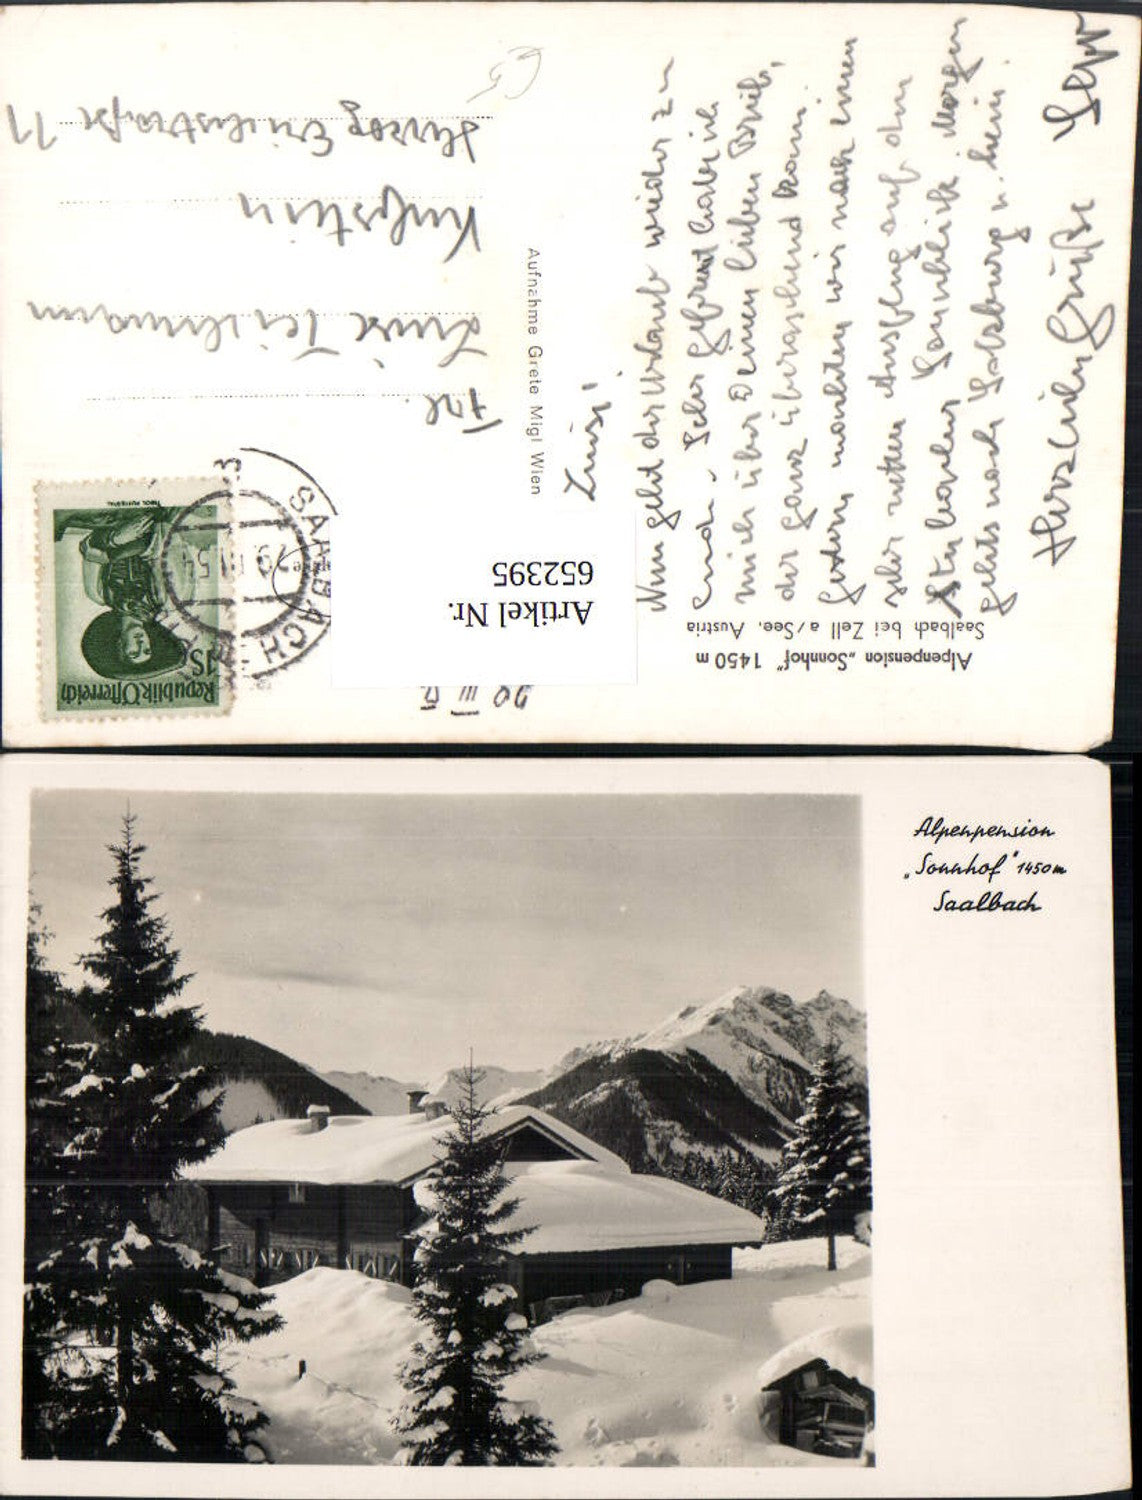 Alpenpension „Sonnhof“ 1450 m
Saalbach bei Zell a/See, Austria
Artikel Nr.
652395
Aufnahme Grete Migl Wien
Republik Österreich
1S
TIROL, PUSTERTAL
SAALBACH
29.III.54
20 III
Luisi!
Nun geht der Urlaub wieder zu
Ende. Sehr gefreut habe ich
mich über Deinen lieben Brief,
der ganz überraschend kam.
Gestern machten wir noch einen
sehr netten Ausflug auf den
Morgen
gehts nach Salzburg u. heim.
Herzliche Grüße Sepp
Frl.
Luise
Kufstein
Herzog 11
Alpenpension
„Sonnhof“ 1450m
Saalbach